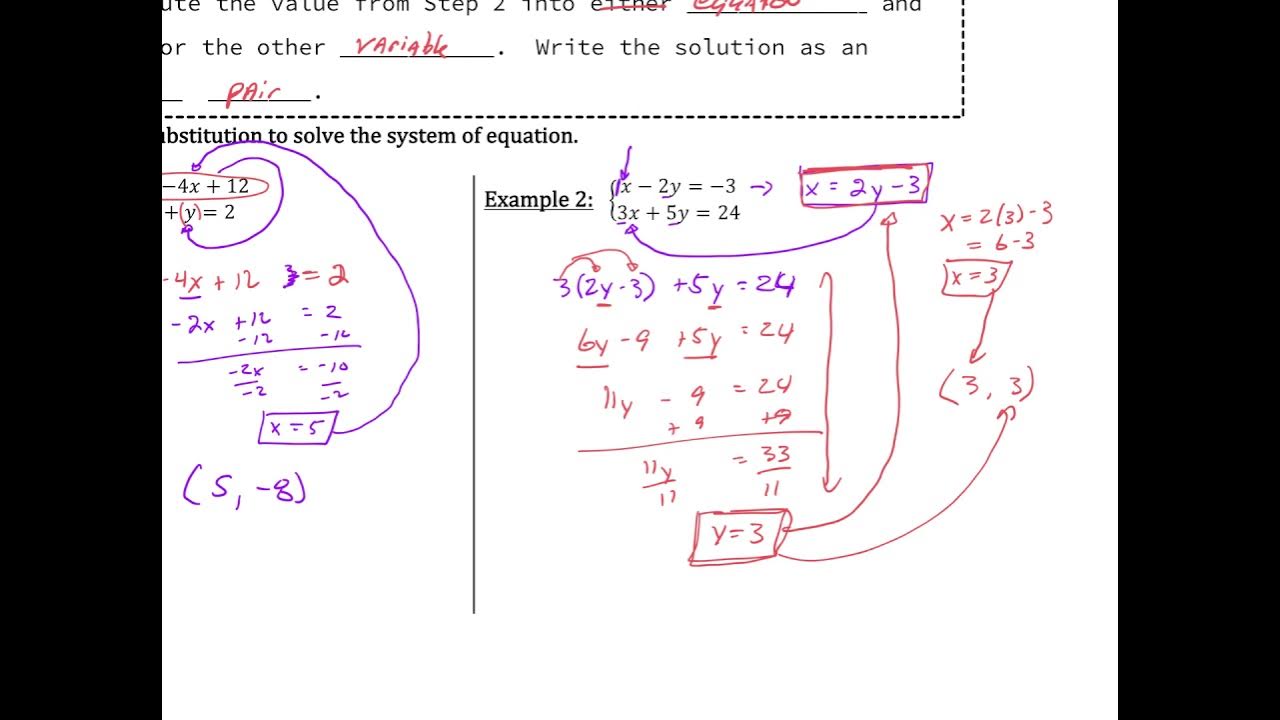 ute the value from Step 2 into either equation and
or the other variable. Write the solution as an
pair.
ubstitution to solve the system of equation.
−4x + 12
+(y) = 2
-4x + 12 = 2
-2x +12 = 2
-12 -12
-2x = -10
-2 -2
x = 5
(5, -8)
Example 2: { 1x − 2y = −3 → x = 2y - 3
3x + 5y = 24
3(2y - 3) + 5y = 24
6y - 9 + 5y = 24
11y - 9 = 24
+ 9 +9
11y = 33
11 11
y = 3
x = 2(3) - 3
= 6 - 3
x = 3
(3, 3)